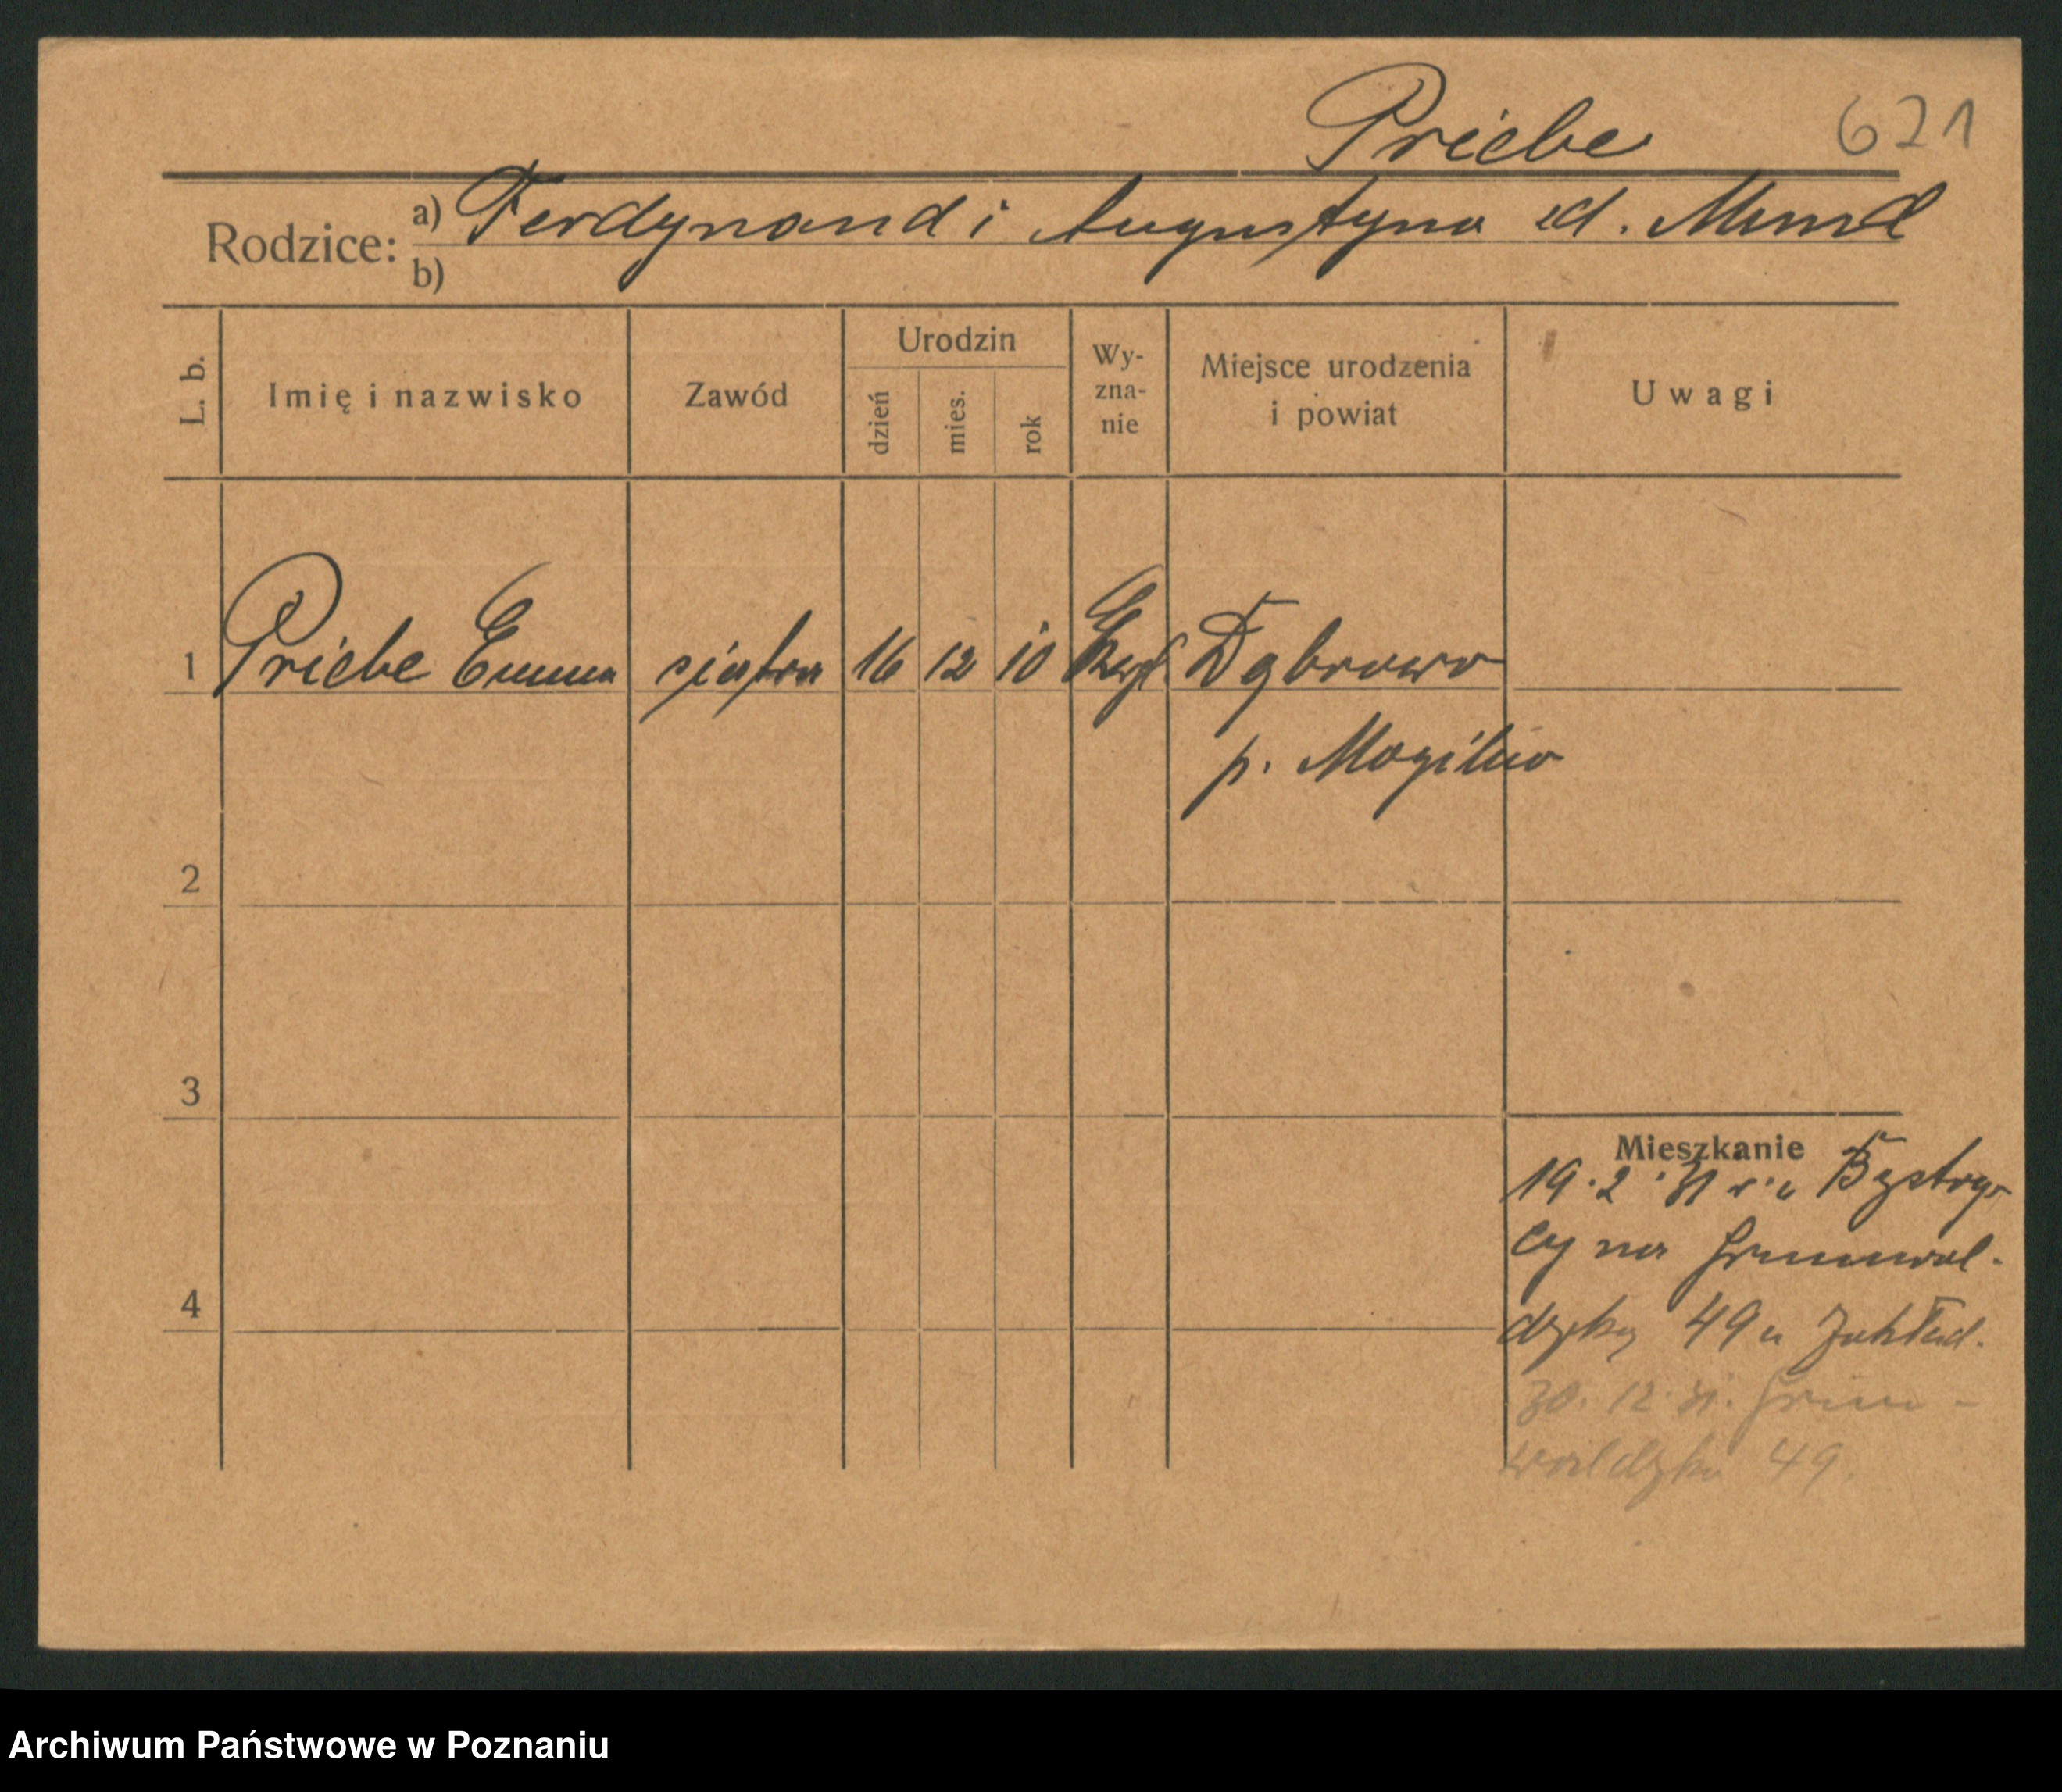 Priebe 621
Rodzice: a) Ferdynand i Augustyna zd. Mund
b)
L. b. Imię i nazwisko Zawód Urodzin dzień mies. rok Wy-zna-nie Miejsce urodzenia i powiat Uwagi
1 Priebe Emma siostra 16 12 10 Ewgl. Dąbrowo
p. Mogilno
2
3
Mieszkanie
19.2.31 r. z Bystrzy
cy na Grunwal-
4
dzką 49 u Zakład.
30.12.31. Grun-
waldzka 49.
Archiwum Państwowe w Poznaniu